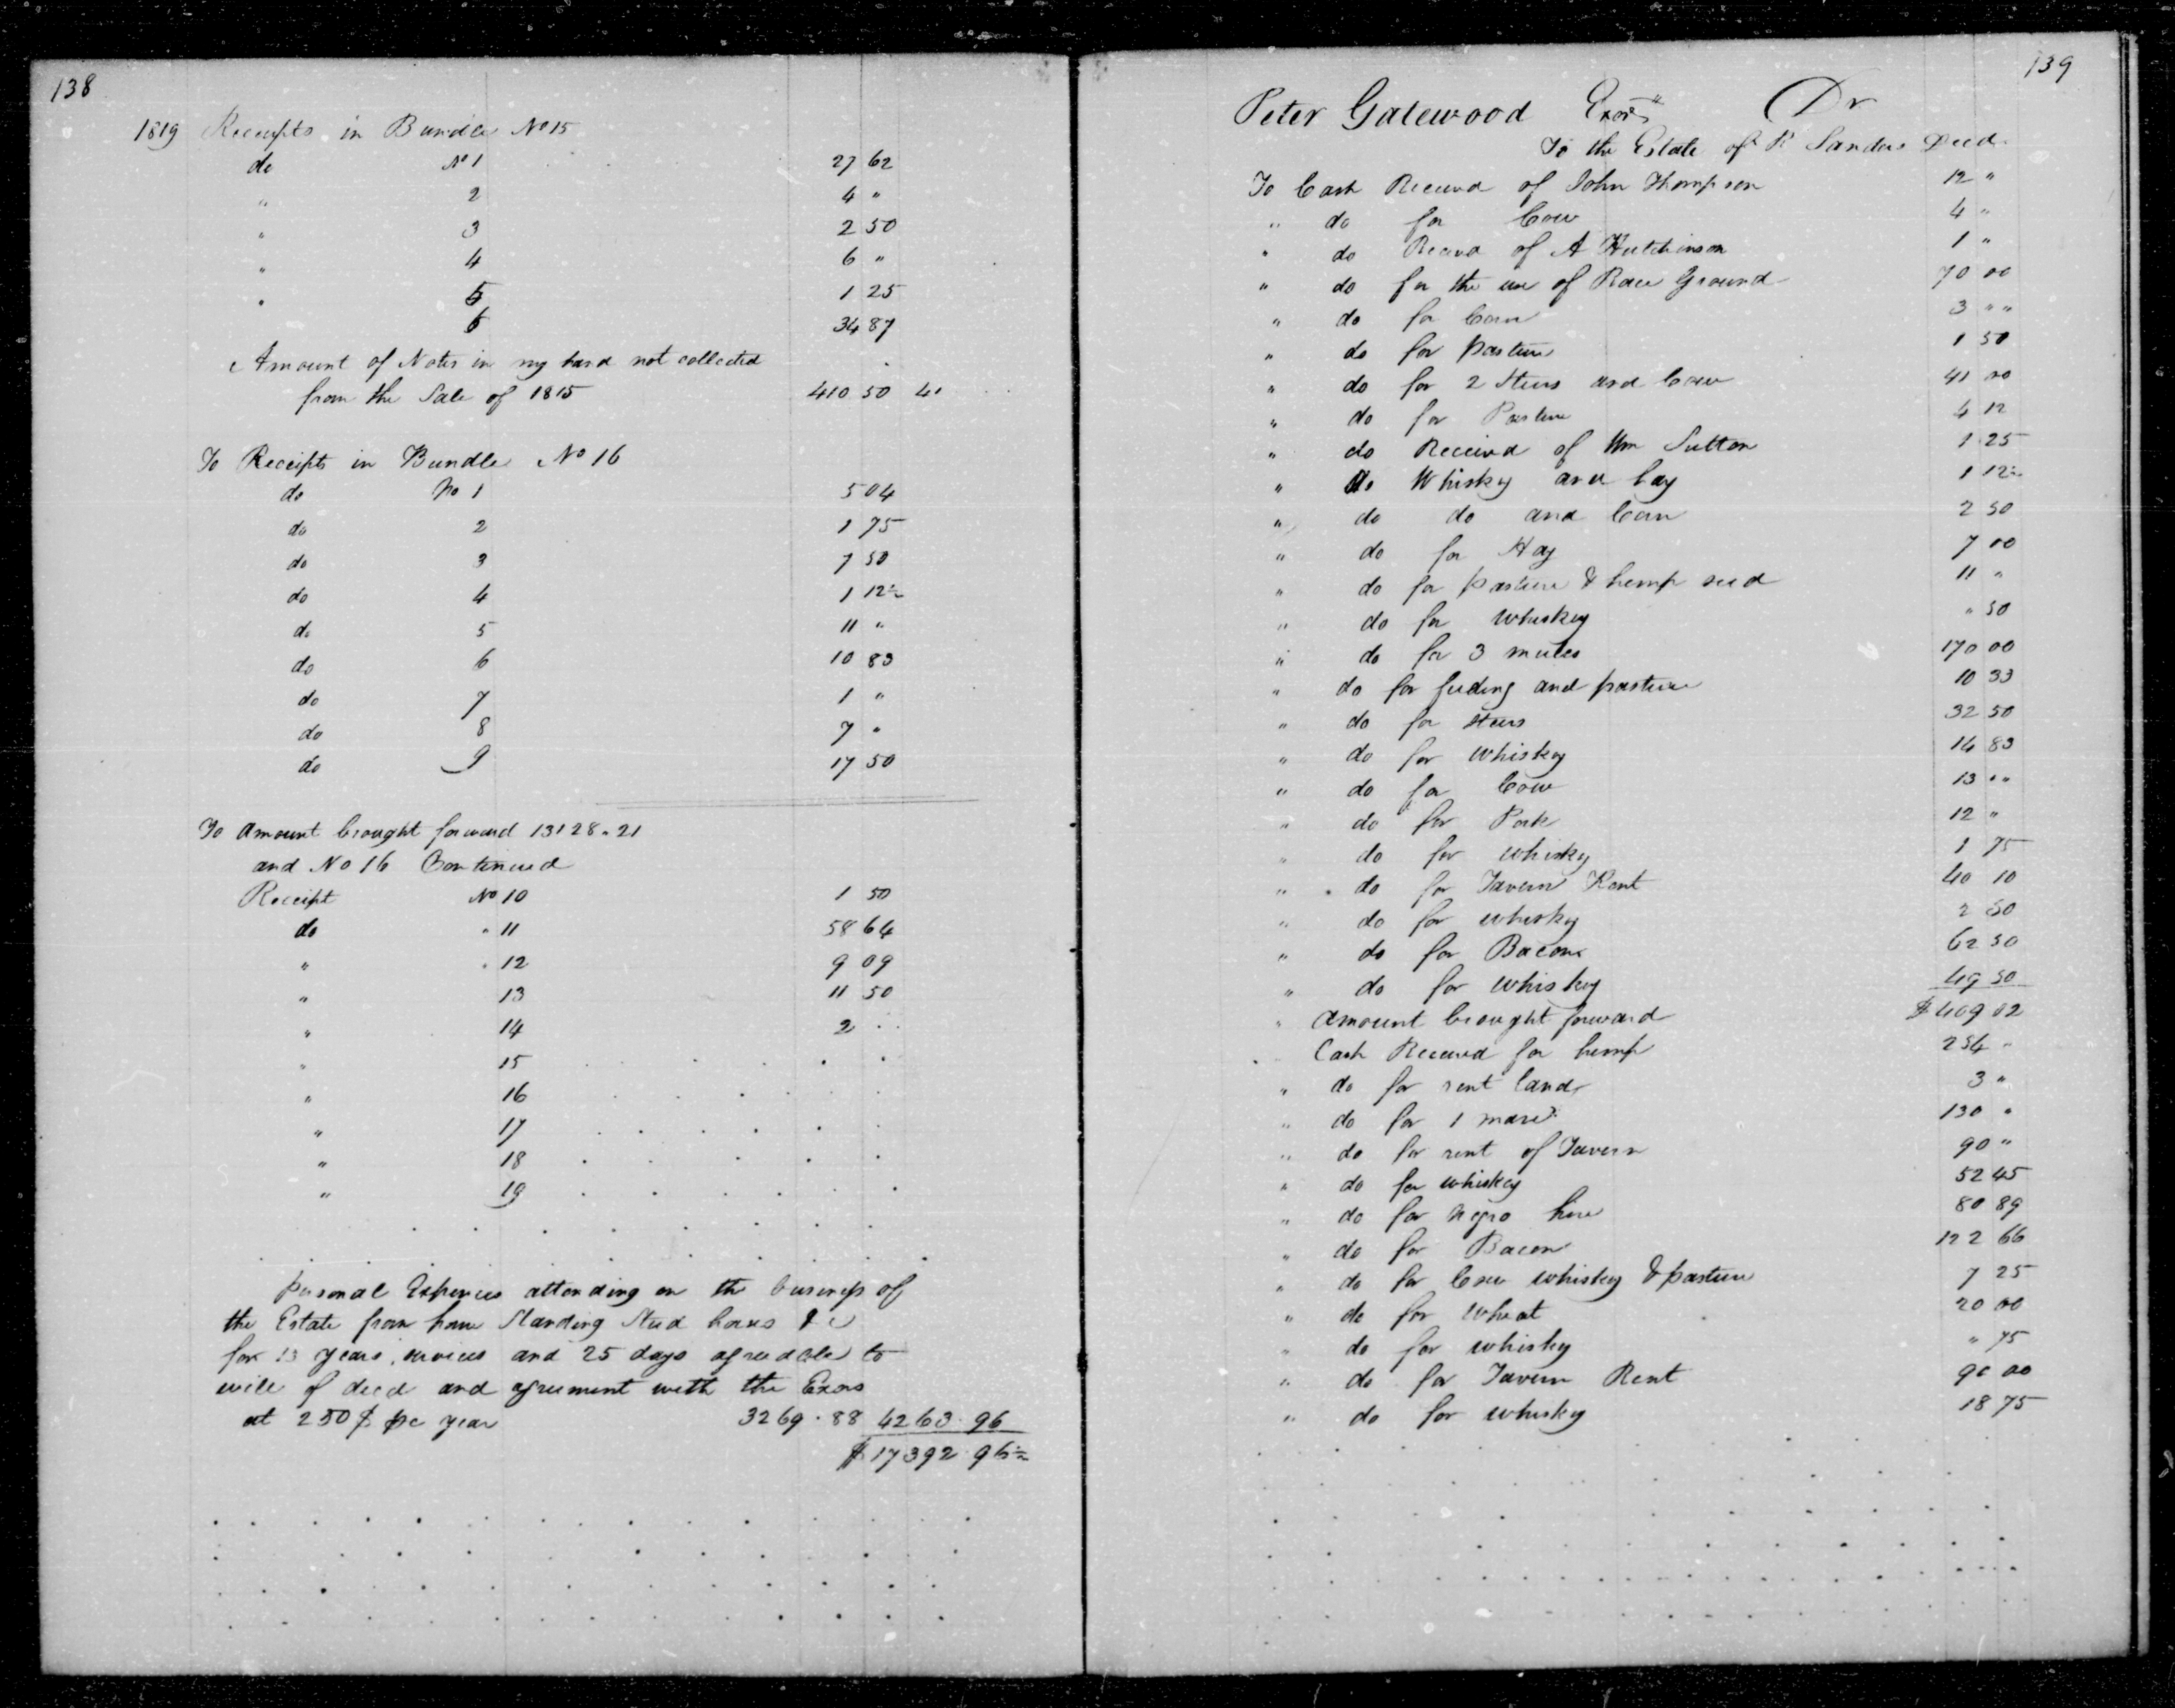 138
1819 Receipts in Bundle No 15
do No 1 27 62
" 2 4 "
" 3 2 50
" 4 6 "
" 5 1 25
6 34 87
Amount of Notes in my hand not collected
from the Sale of 1815 410 50
To Receipts in Bundle No 16
do No 1 5 04
do 2 1 75
do 3 7 50
do 4 1 12½
do 5 11 "
do 6 10 83
do 7 1 "
do 8 7 "
do 9 17 50
To Amount brought forward 13128.21
and No 16 Continued
Receipt No 10 1 50
do " 11 58 64
" " 12 9 09
" 13 11 50
" 14 2
" 15
" 16
" 17
" 18
" 19
personal Expences attending on the business of
the Estate from home Standing Stud horses &c
for 13 years services and 25 days agreeable to
will of decd and agreement with the Exors
at 250 $ pe year 3269.88 4263.96
$17392.96½
139
Peter Gatewood Exor Dr
To the Estate of R Sanders Decd
To Cash Received of John Thompson 12 "
" do for Cow 4 "
" do Recevd of A Hutchinson 1 "
" do for the use of Race Ground 70 00
" do for Corn 3 " "
" do for pasture 1 50
" do for 2 Steers and Cow 41 00
" do for Pasture 4 12
" do Received of Wm Sutton 1 25
" do Whiskey and 1 12½
" do do and Corn 2 50
" do for Hay 7 00
" do for pasture & hemp seed 11 "
" do for whiskey " 50
" do for 3 mules 170 00
" do for feeding and pasture 10 33
" do for Steers 32 50
" do for whiskey 14 83
" do for Cow 13 " "
" do for Pork 12 "
" do for whisky 1 75
" do for Tavern Rent 40 10
" do for whisky 2 50
" do for Bacon 62 50
" do for whiskey 49 50
" Amount brought forward $409 02
Cash Received for hemp 254 "
" do for rent land 3 "
" do for 1 mare 130 "
" do for rent of Tavern 90 "
" do for whiskey 52 45
" do for negro hire 80 89
" do for Bacon 122 66
" do for Cow whiskey & pasture 7 25
" do for Wheat 20 00
" do for whisky " 75
" do for Tavern Rent 90 00
" do for whisky 18 75